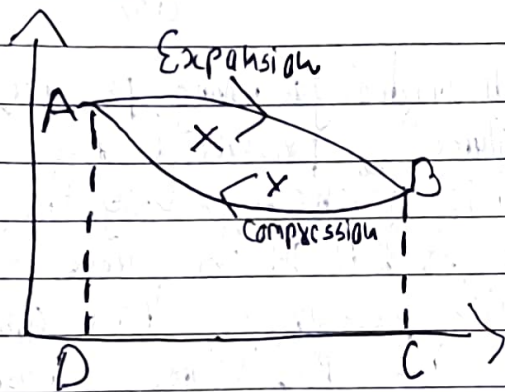 Expansion
A
X
X
B
Compression
D
C